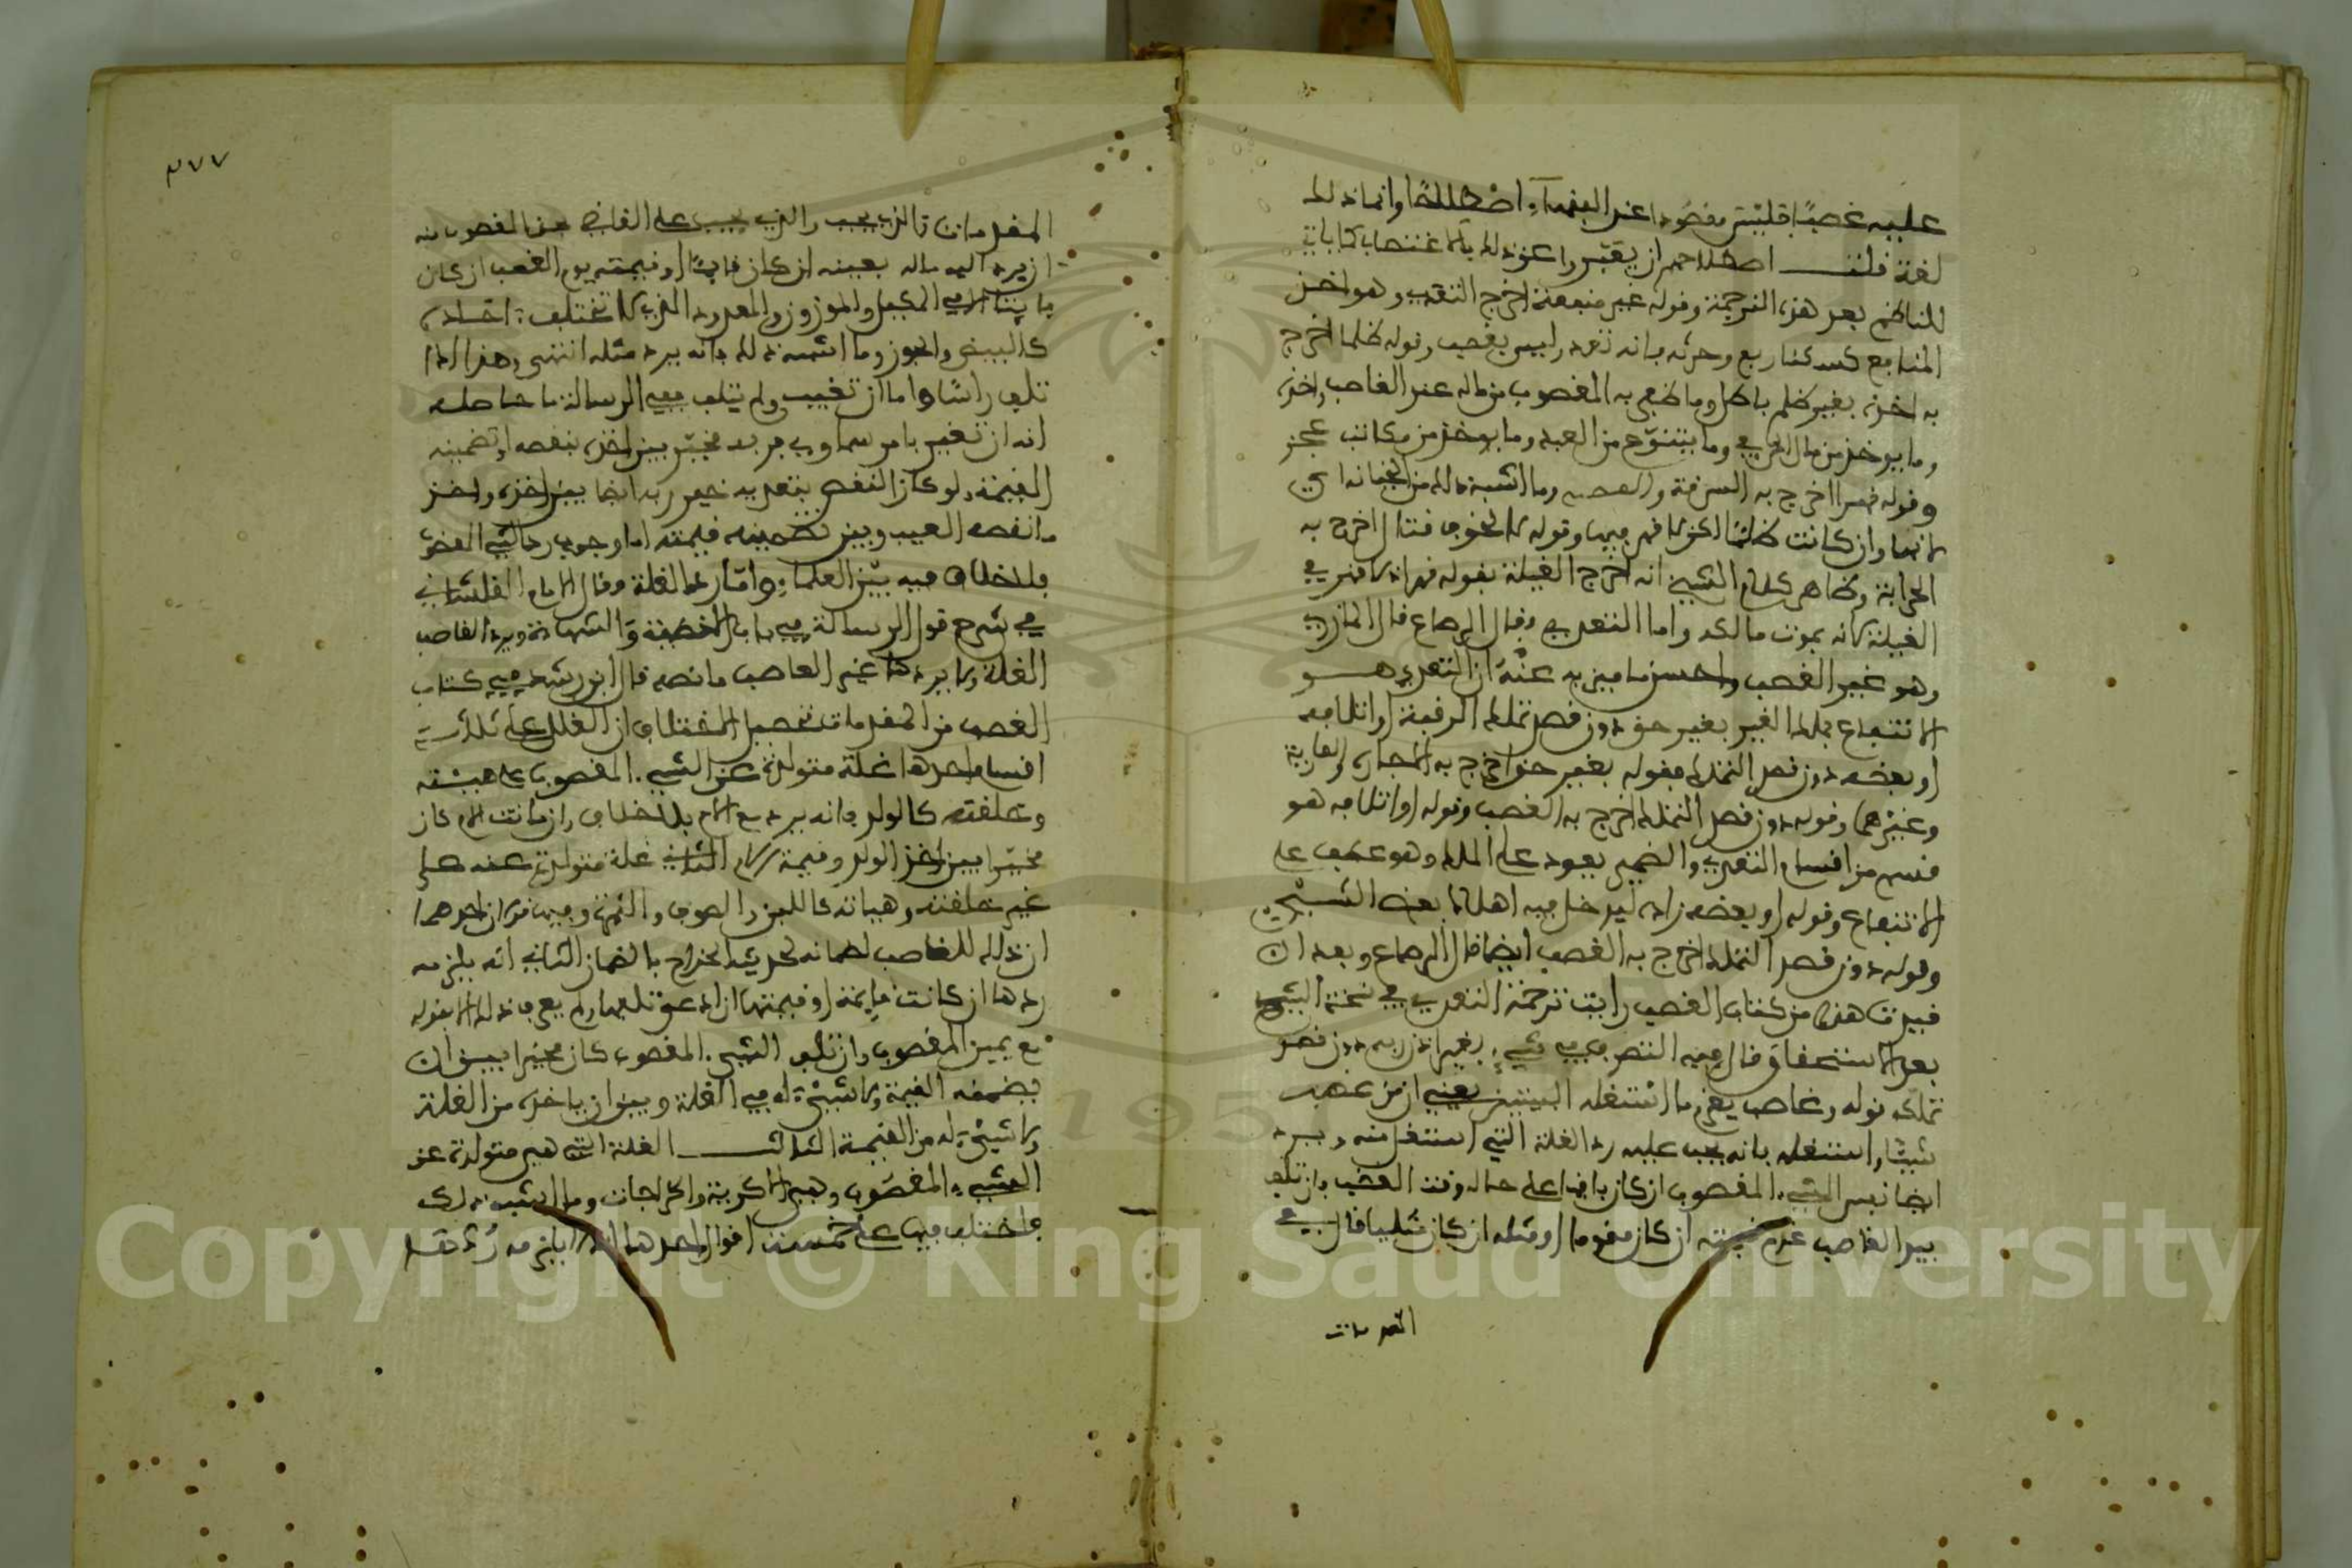 عليه غصبا فليس مقصودا عند الفقهاء اصطلاحا وانما ذلك
لغة قلت اصطلاحهم ان يفسروا عن ذلك بالاغتصاب كما ياتي
للناظم بعد هذه الترجمة وقوله غير منفعة اخرج التعدي وهو اخذ
المنافع كسكنى ربع وحرثه فانه تعد وليس بغصب وقوله ظلما اخرج
به اخذه بغير ظلم باطل وما ظفر به المغصوب من ماله عند الغاصب واخذه
وما يوخذ من مال الحربي وما ينتزع من العبد وما يوخذ من مكاتب عجز
وقوله قهرا اخرج به السرقة وما اشبه ذلك من الخيانة اي
لانها وان كانت ظلما لكن لا قهر فيها وقوله لا لخوف قتال اخرج به
الحرابة وظاهر كلام الشيخ انه اخرج الغيلة بقوله قهرا اذ لا قهر في
الغيلة لانه بموت مالكه واما التعدي فقال الرصاع قال المازري
وهو غير الغصب واحسن ما ميز به عنه ان التعدي هو
الانتفاع بملك الغير بغير حق دون قصد تملك الرقبة او اتلافه
او بعضه دون قصد التملك فقوله بغير حق اخرج به الاجارة والعارية
وغيرهما وقوله دون قصد التملك اخرج به الغصب وقوله او اتلافه هو
قسم من اقسام التعدي والضمير يعود على الملك وهو عطف على
الانتفاع وقوله او بعضه زاده ليدخل فيه اهلاك بعض الشيء
وقوله دون قصد التملك اخرج به الغصب ايضا قال الرصاع وبعد ان
قيدت هذا من كتاب الغصب رايت ترجمة التعدي في نسخة الشيخ
بعد الاستحقاق قال فيه التصرف في شيء بغير اذن ربه دون قصد
تملكه قوله وغاصب يغرم ما استغله البيتين يعني ان من غصب
شيئا واستغله فانه يجب عليه رد الغلة التي استغل منه ويرد
ايضا نفس الشيء المغصوب ان كان باقيا على حاله وقت الغصب وان تلف
بيد الغاصب غرم قيمته ان كان مقوما او مثله ان كان مثليا قال في
المقدمات
٣٧٧
المقدمات فالذي يجب والذي يجب على الغاصب المغصوب منه
ان يرد اليه ماله بعينه ان كان قايما او قيمته يوم الغصب ان كان
فايتا الا في المكيل والموزون والمعدود الذي لا تختلف احاده
كالبيض والجوز وما اشبه ذلك فانه يرد مثله انتهى وهذا اذا
تلف راسا واما ان تغيب ولم يتلف ففي الرسالة ما حاصله
انه ان تغير بامر سماوي فربه مخير بين اخذه بنقصه او تضمينه
القيمة ولو كان النقص بتعديه خير ربه ايضا بين اخذه واخذ
ما نقصه العيب وبين تضمينه قيمته اما وجوب رد الشيء المغصوب
فلا خلاف فيه بين العلماء واما رد الغلة فقال الامام القلشاني
في شرح قول الرسالة في باب الاقضية والشهادة ويرد الغاصب
الغلة ولا يردها غير الغاصب ما نصه قال ابن رشد في كتاب
الغصب من المقدمات تحصيل الاختلاف ان الغلل على ثلاثة
اقسام احدها غلة متولدة عن الشيء المغصوب على هيئته
وخلقته كالولد فانه يرد مع الام بلا خلاف وان ماتت الام كان
مخيرا بين اخذ الولد وقيمة الام الثاني غلة متولدة عنه على
غير خلقته وهيئاته كاللبن والصوف والثمرة وفيه قولان احدهما
ان ذلك للغاصب لضمانه لحديث الخراج بالضمان الثاني انه يلزمه
ردها ان كانت قايمة او قيمتها ان ادعى تلفها ولم يعرف ذلك الا بقوله
مع يمين المغصوب وان تلف الشيء المغصوب كان مخيرا بين ان
يضمنه القيمة ولا شيء له في الغلة وبين ان ياخذه من الغلة
ولا شيء له من القيمة الثالث الغلة التي هي متولدة عن
الشيء المغصوب وهي الاكرية والخراجات وما اشبه ذلك
فاختلف فيها على خمسة اقوال احدها انه لا يلزمه رد
Copyright © King Saud University
195